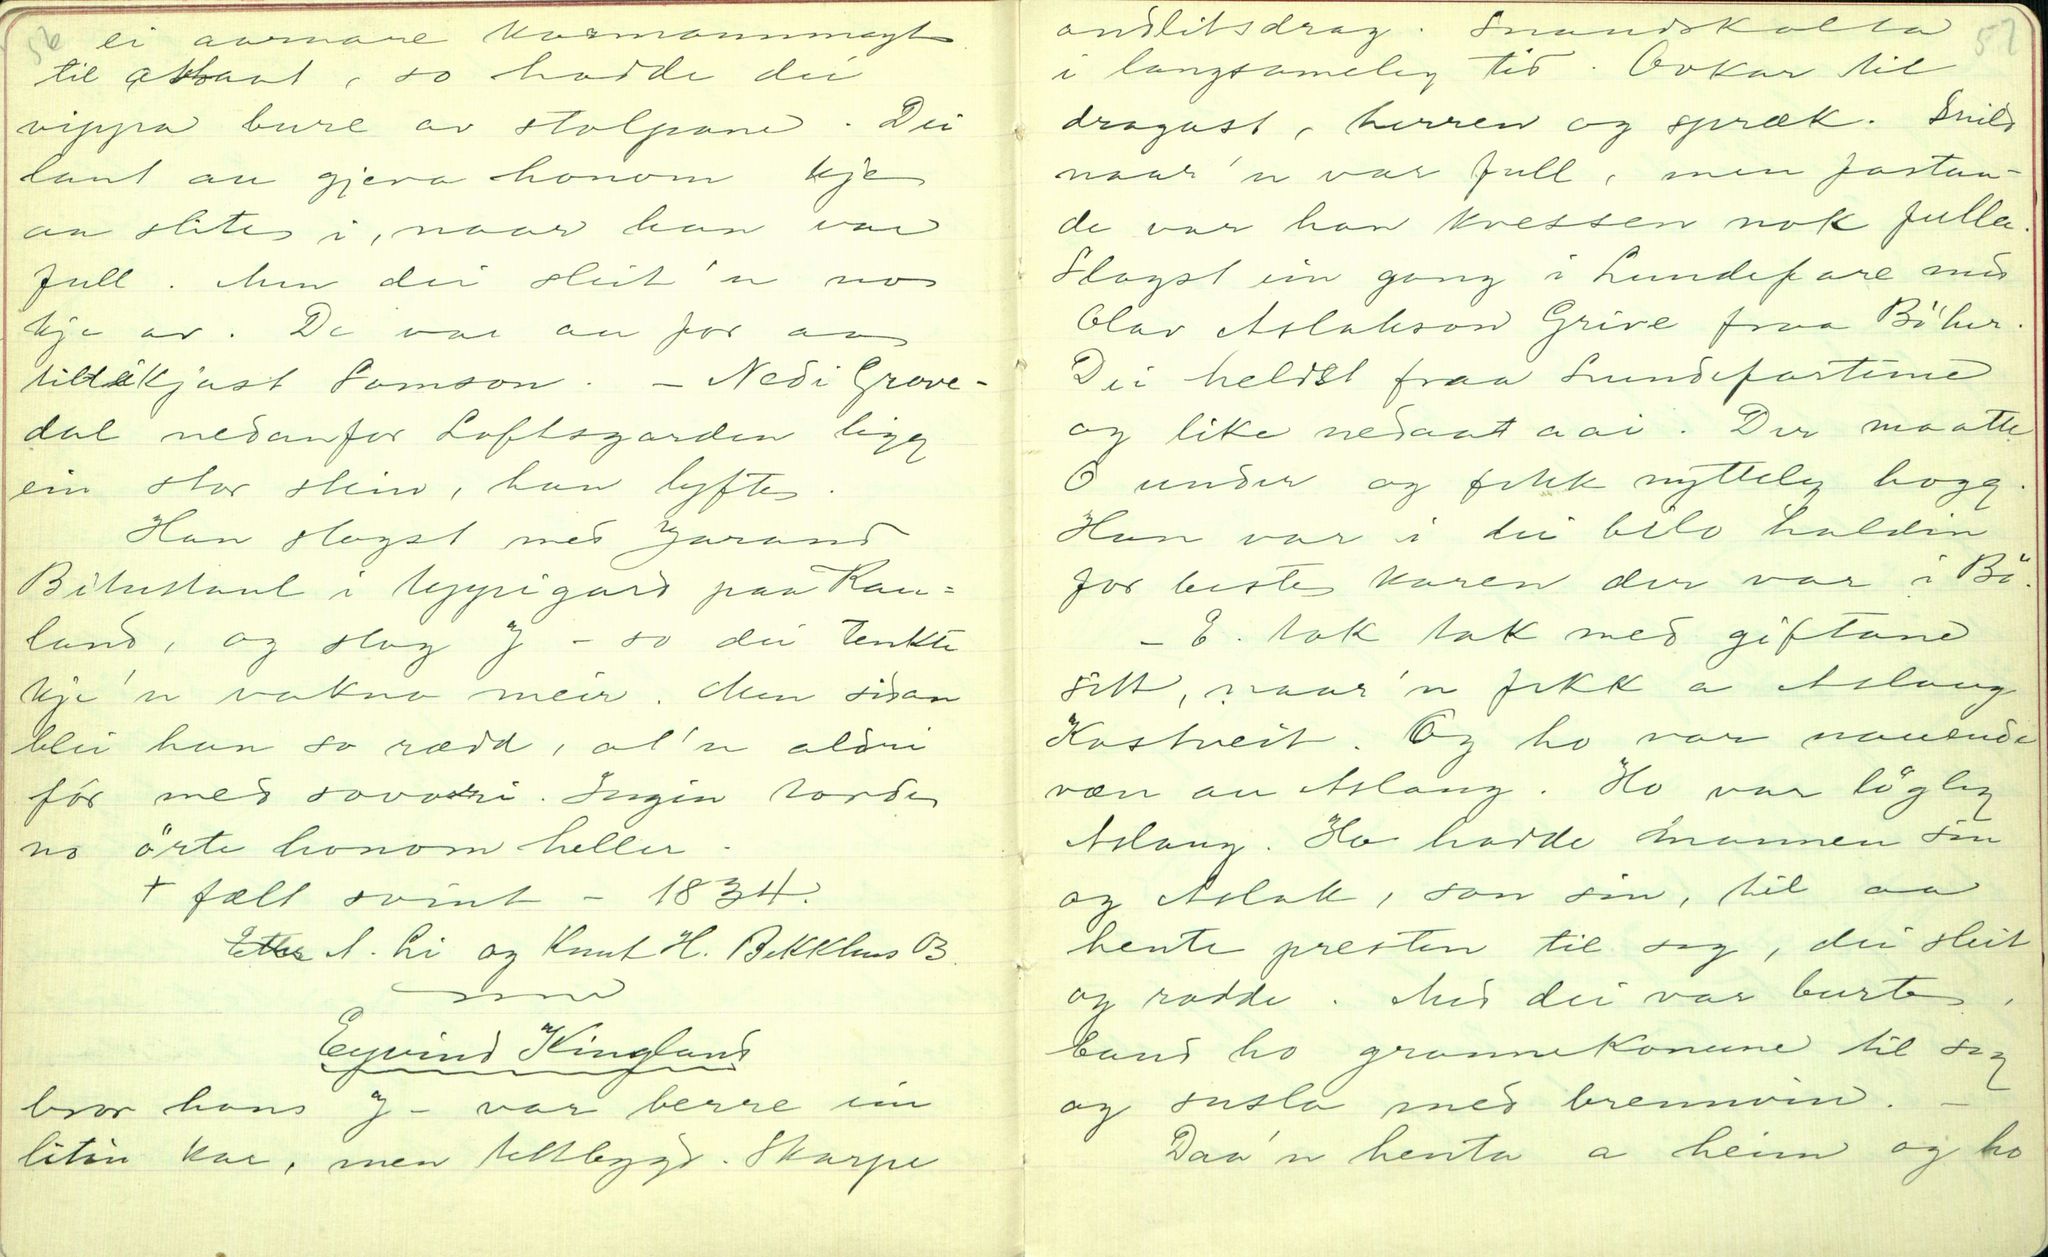 56
ei aarnare karmannmagt
til attaat, so hadde dei
vippa bure av stolpane. Dei
laut au gjeva honom kje
aa slite i, naar han var
full. Men dei sleit'n no
kje av. De var au for aa
tiltekjast Samson. – Nedi Grove-
dal nedanfor Loftsgarden ligg
ein stor stein, han lyfte.
Han slogst med Jarand
Bitustaul i Uppigard paa Rau=
land, og slog J – so dei tenkte
kje'n vakna meir. Men sidan
blei han so rædd, at'n aldri
fór med sovori. Ingin torde
no örte honom heller.
+ fælt svint – 1834.
A. Li og Knut H. Bekkhus
Eyvind Kingland
bror hans J – var berre ein
litin kar, men tettbygd. Skarpe
57
andlitsdrag. Snaudskalla
i langsameleg tid. Ovkar til
dragast, herren og spræk. Snild
naar'n var full, men fastan-
de var han kvessen nok fulla.
Slogst ein gong i Lundefare med
Olav Aslakson Grive fraa Böher.
Dei heldst fraa Lundefartene
og like nedaat aai. Der maatte
O under og fekk nytteleg hogg.
Han var i dei bilo haldin
for beste karen der var i Bö.
– E. tok tak med giftane
sitt, naar'n fekk a Aslaug
Kostveit. Og ho var nauende
væn au Aslaug. Ho var lögleg
Aslaug. Ho hadde mannen sin
og Aslak, son sin, til aa
hente presten til seg, dei sleit
og rodde. Med dei var burte,
baud ho grannekonune til seg
og susla med brennvin. –
Daa'n henta a heim og ho